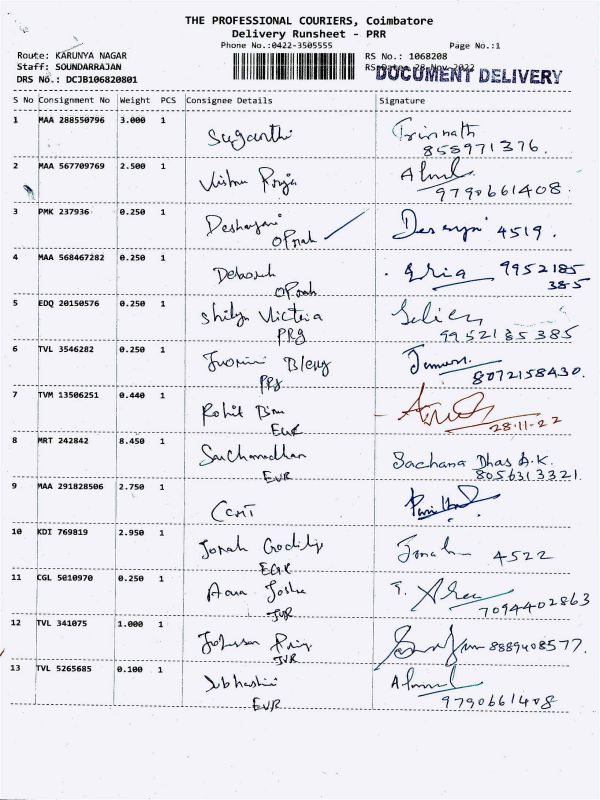 THE PROFESSIONAL COURIERS, Coimbatore
Delivery Runsheet - PRR
Phone No.:0422-3505555
Page No.:1
Route: KARUNYA NAGAR
RS No.: 1068208
Staff: SOUNDARRAJAN
RS Date: 28-Nov-2022
DOCUMENT DELIVERY
DRS No.: DCJB106820801
S No Consignment No Weight PCS Consignee Details Signature
1 MAA 288550796 3.000 1 Suganthi Trinnath
858971376.
2 MAA 567709769 2.500 1 Vishnu Priya
9790661408.
3 PMK 237936 0.250 1 4519.
4 MAA 568467282 0.250 1 Deborah 9952185
385
5 EDQ 20150576 0.250 1 Shilya Victoria
PRJ 9952185385
6 TVL 3546282 0.250 1
PRJ 8072158430.
7 TVM 13506251 0.440 1 Rohit
EGR 28-11-22
8 MRT 242842 8.450 1 Sachana Dhas A.K.
EVR 8056313321.
9 MAA 291828506 2.750 1 CCMT
10 KDI 769819 2.950 1 Jonah Jonah 4522
EGR
11 CGL 5010970 0.250 1
JVR 7094402863
12 TVL 341075 1.000 1 8889408577.
JVR
13 TVL 5265685 0.100 1 Subhashini
EVR 9790661408